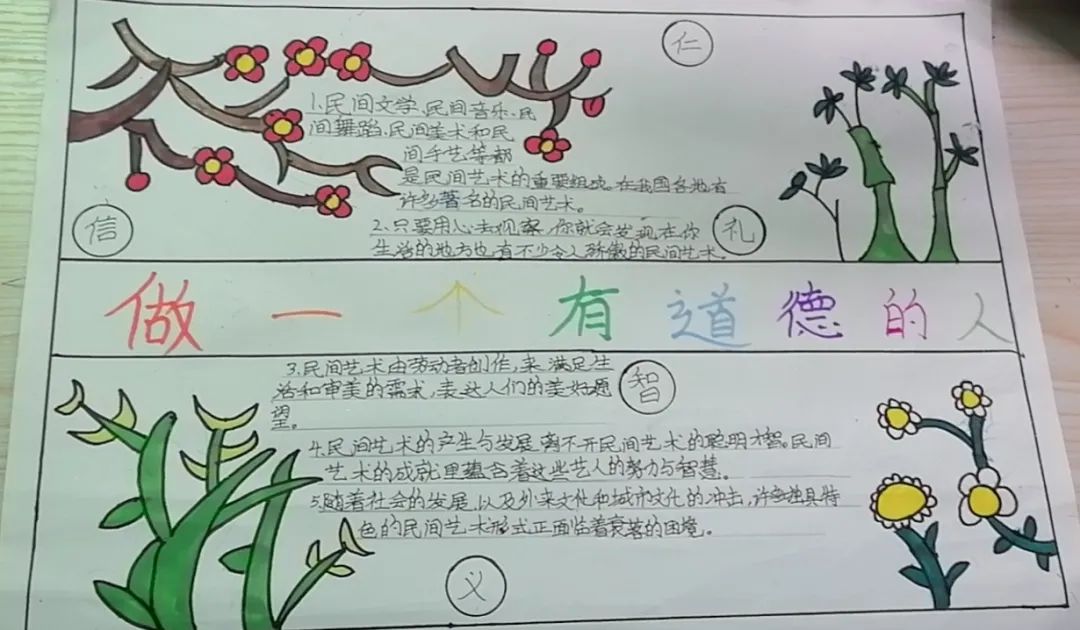 仁
1、民间文学、民间音乐、民
间舞蹈、民间美术和民
间手艺等都
是民间艺术的重要组成。在我国各地有
许多著名的民间艺术。
信
礼
2、只要用心去观察，你就会发现在你
生活的地方也有不少令人骄傲的民间艺术。
做一个有道德的人
3、民间艺术由劳动者创作，来满足生
活和审美的需求，表达人们的美好愿
望。
智
4、民间艺术的产生与发展离不开民间艺术的聪明才智。民间
艺术的成就里蕴含着这些艺人的努力与智慧。
5、随着社会的发展，以及外来文化和城市文化的冲击，许多独具特
色的民间艺术形式正面临着衰落的困境。
义